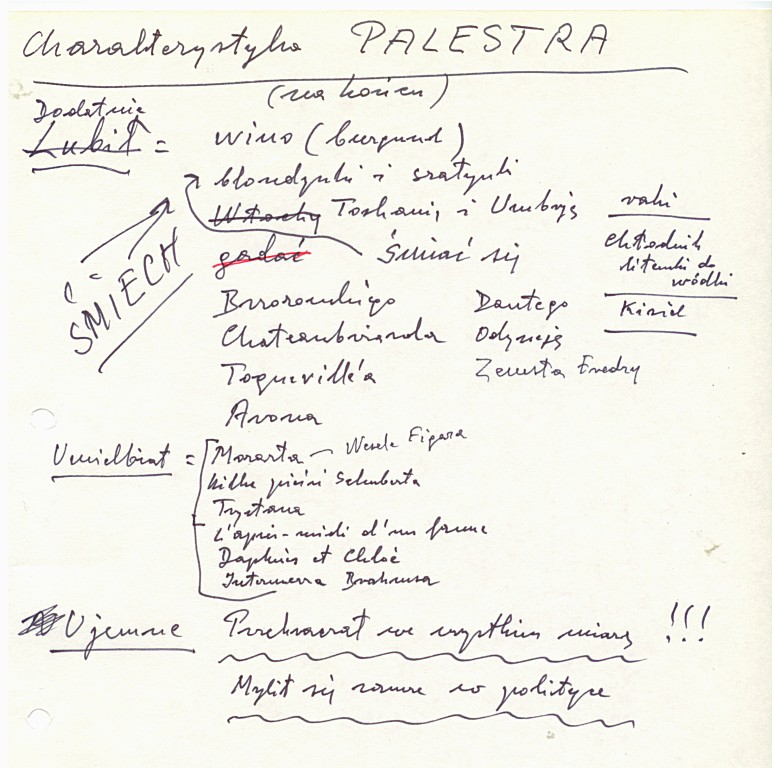 Charakterystyka PALESTRA
(na końcu)
Dodatnie
Lubił = wino (burgund)
blondynki i szatynki
Włochy Toskanię i Umbrię
gadać Śmiać się
ŚMIECH
raki
Chłodnik
litewski do
wódki
Kisiel
Brzozowskiego Dantego
Chateaubrianda Odyseję
Toqueville'a Zemsta Fredry
Arona
Uwielbiał = Mozarta – Wesele Figara
kilka pieśni Schuberta
Trystana
L'après-midi d'un faune
Daphnis et Chloé
Intermezza Brahmsa
Ujemne Przekraczał we wszystkim miarę !!!
Mylił się zawsze w polityce